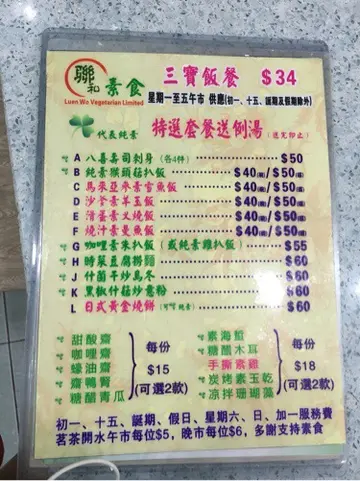 聯和素食
Luen Wo Vegetarian Limited
三寶飯餐 $34
星期一至五午市 供應(初一、十五、誕期及假期除外)
代表純素
特選套餐送例湯(送完即止)
A 八喜壽司刺身(各4件) $50
B 純素猴頭菇扒飯 $40(單)/$50(餐)
C 馬來亞來素當魚飯 $40(單)/$50(餐)
D 沙爹素羊玉飯 $40(單)/$50(餐)
E 滑蛋素叉燒飯 $40(單)/$50(餐)
F 燒汁素叉魚飯 $40(單)/$50(餐)
G 咖哩素東扒飯(或純素雞扒飯) $55
H 時菜豆腐撈麵 $60
J 什菌干炒烏冬 $60
K 黑椒什菇炒意粉 $60
L 日式黃金燒餅 $60
甜酸齋
咖哩齋
蠔油齋
齋鴨腎
糖醋青瓜
每份
$15
(可選2款)
素海蜇
糖醋木耳
手撕素雞
炭烤素玉乾
涼拌珊瑚藻
每份
$18
(可選2款)
初一、十五、誕期、假日、星期六、日、加一服務費
茗茶開水午市每位$5,晚市每位$6,多謝支持素食